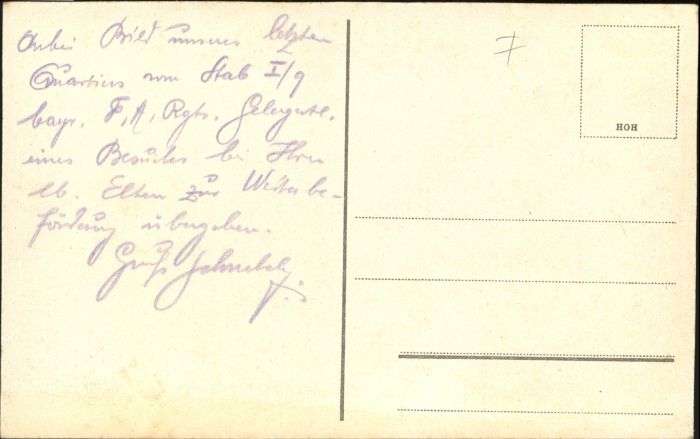 Anbei Bild unseres letzten
Quartiers vom Stab I/9
bayr. F, A, Rgts. Gelegentl.
eines Besuches bei Ihren
lb. Eltern zur Weiterbe-
förderung übergeben.
Gruß
7
HOH